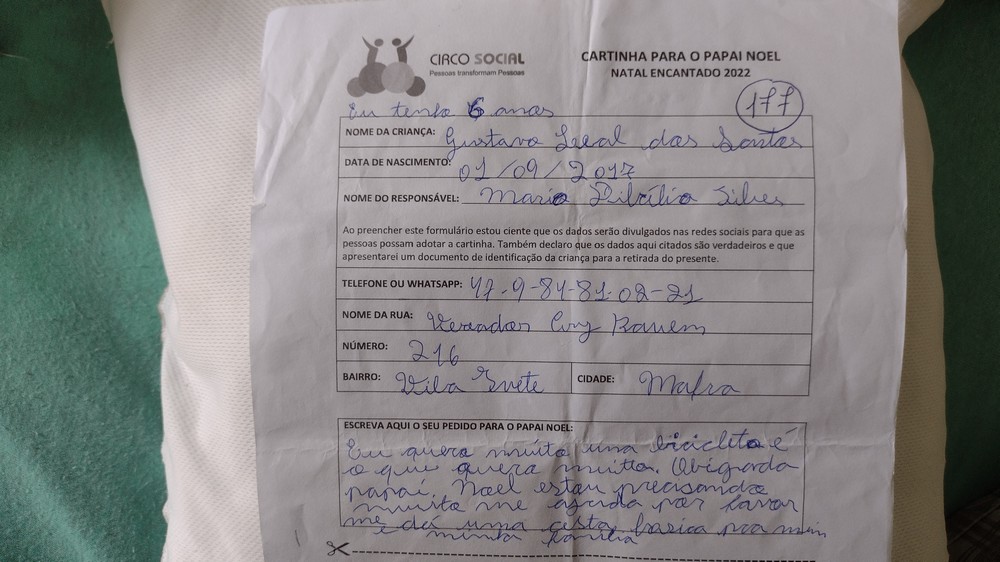 CIRCO SOCIAL
Pessoas transformam Pessoas
CARTINHA PARA O PAPAI NOEL
NATAL ENCANTADO 2022
177
Eu tenho 6 anos
NOME DA CRIANÇA: Gustavo Leal dos Santos
DATA DE NASCIMENTO: 01/09/2017
NOME DO RESPONSÁVEL: Maria
Ao preencher este formulário estou ciente que os dados serão divulgados nas redes sociais para que as
pessoas possam adotar a cartinha. Também declaro que os dados aqui citados são verdadeiros e que
apresentarei um documento de identificação da criança para a retirada do presente.
TELEFONE OU WHATSAPP: 47-9-84-81-02-21
NOME DA RUA: Vereador
NÚMERO: 216
BAIRRO: Vila Ivete CIDADE: Mafra
ESCREVA AQUI O SEU PEDIDO PARA O PAPAI NOEL:
Eu quero muito una bicicleta é
o que quero muito. Obigado
papai. Noel estou precisando
muito me ajuda por favor
me dá uma cesta basica pra mim
e minha familia